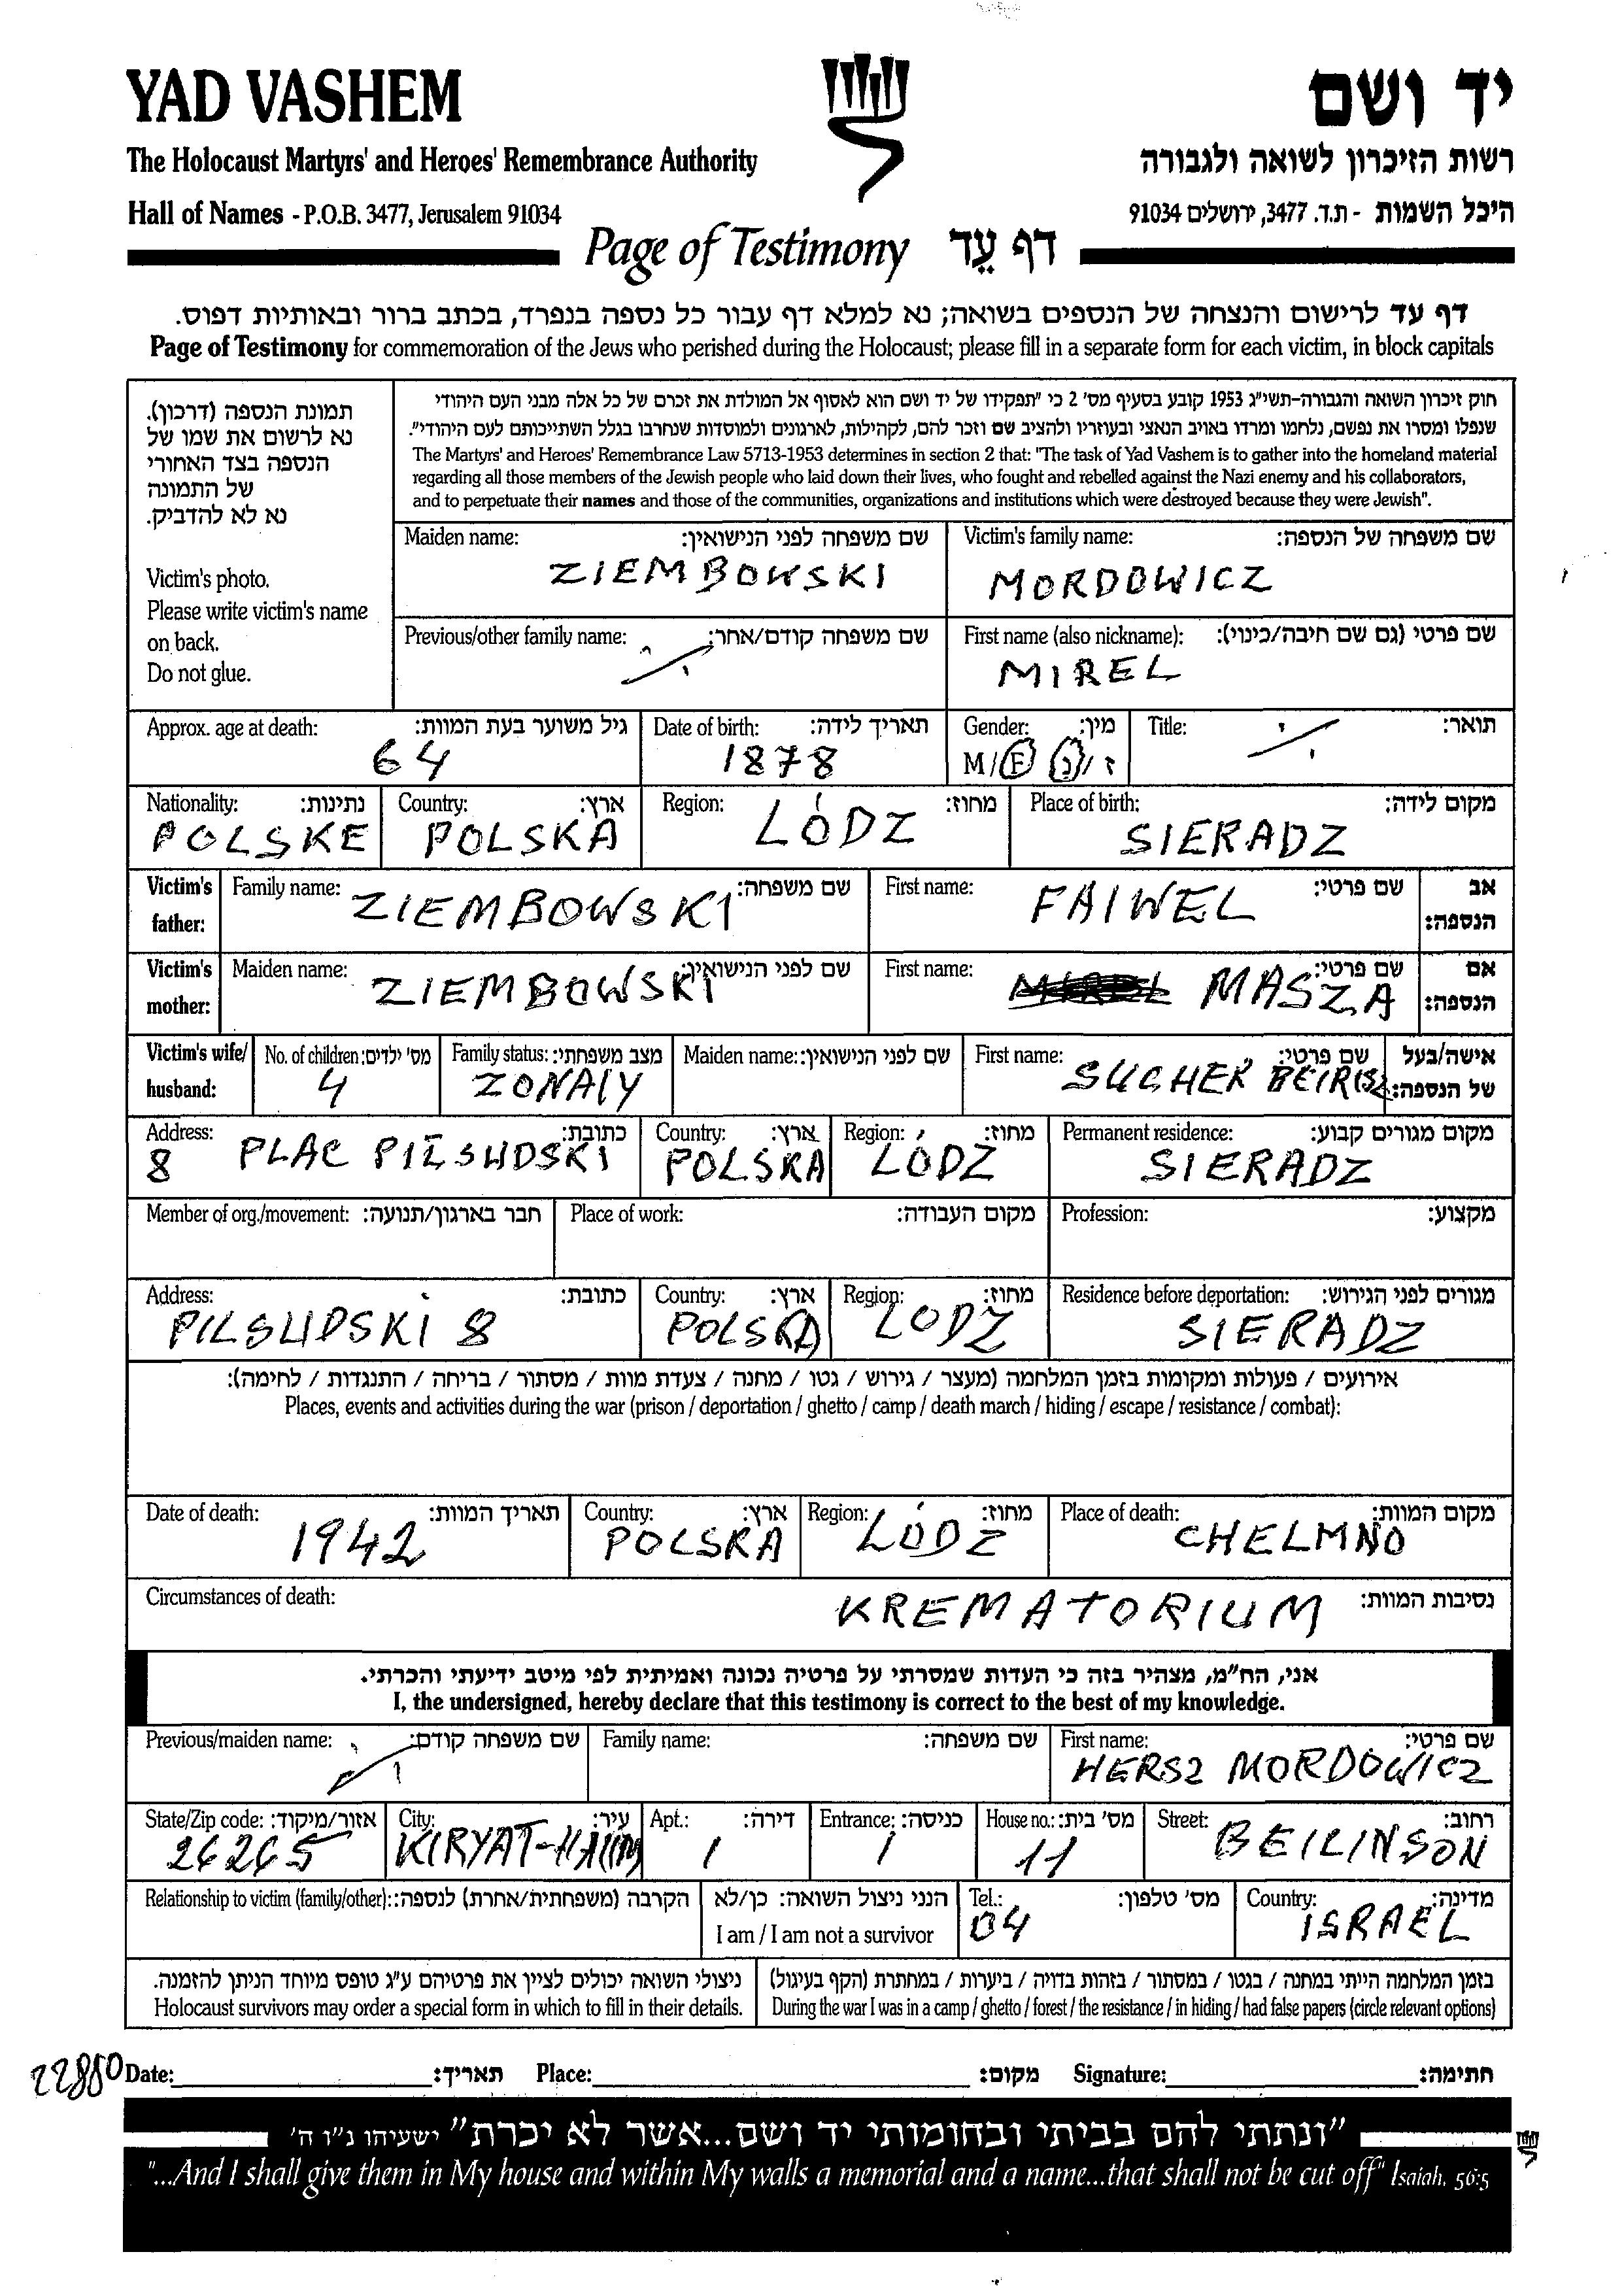 YAD VASHEM
יד ושם
The Holocaust Martyrs' and Heroes' Remembrance Authority
רשות הזיכרון לשואה ולגבורה
Hall of Names - P.O.B. 3477, Jerusalem 91034
היכל השמות - ת.ד. 3477, ירושלים 91034
Page of Testimony דף עֵד
דף עד לרישום והנצחה של הנספים בשואה; נא למלא דף עבור כל נספה בנפרד, בכתב ברור ובאותיות דפוס.
Page of Testimony for commemoration of the Jews who perished during the Holocaust; please fill in a separate form for each victim, in block capitals
תמונת הנספה (דרכון).
נא לרשום את שמו של
הנספה בצד האחורי
של התמונה
נא לא להדביק.
Victim's photo.
Please write victim's name
on back.
Do not glue.
חוק זיכרון השואה והגבורה-תשי"ג 1953 קובע בסעיף מס' 2 כי "תפקידו של יד ושם הוא לאסוף אל המולדת את זכרם של כל אלה מבני העם היהודי
שנפלו ומסרו את נפשם, נלחמו ומרדו באויב הנאצי ובעוזריו ולהציב שם וזכר להם, לקהילות, לארגונים ולמוסדות שנחרבו בגלל השתייכותם לעם היהודי".
The Martyrs' and Heroes' Remembrance Law 5713-1953 determines in section 2 that: "The task of Yad Vashem is to gather into the homeland material
regarding all those members of the Jewish people who laid down their lives, who fought and rebelled against the Nazi enemy and his collaborators,
and to perpetuate their names and those of the communities, organizations and institutions which were destroyed because they were Jewish".
Maiden name: שם משפחה לפני הנישואין:
ZIEMBOWSKI
Victim's family name: שם משפחה של הנספה:
MORDOWICZ
Previous/other family name: שם משפחה קודם/אחר:
First name (also nickname): שם פרטי (גם שם חיבה/כינוי):
MIREL
Approx. age at death: גיל משוער בעת המוות:
64
Date of birth: תאריך לידה:
1878
Gender: מין:
M/F נ/ז
Title: תואר:
Nationality: נתינות:
POLSKE
Country: ארץ:
POLSKA
Region: מחוז:
LÓDZ
Place of birth: מקום לידה:
SIERADZ
Victim's father:
Family name: שם משפחה:
ZIEMBOWSKI
First name: שם פרטי:
FAIWEL
אב הנספה:
Victim's mother:
Maiden name: שם לפני הנישואין:
ZIEMBOWSKI
First name: שם פרטי:
MASZA
אם הנספה:
Victim's wife/ husband:
No. of children: מס' ילדים:
4
Family status: מצב משפחתי:
ZONATY
Maiden name: שם לפני הנישואין:
First name: שם פרטי:
SUCHER BEIRISZ
אישה/בעל של הנספה:
Address: כתובת:
8 PLAC PILSUDSKI
Country: ארץ:
POLSKA
Region: מחוז:
LÓDZ
Permanent residence: מקום מגורים קבוע:
SIERADZ
Member of org./movement: חבר בארגון/תנועה:
Place of work: מקום העבודה:
Profession: מקצוע:
Address: כתובת:
PILSUDSKI 8
Country: ארץ:
POLSKA
Region: מחוז:
LODZ
Residence before deportation: מגורים לפני הגירוש:
SIERADZ
אירועים / פעולות ומקומות בזמן המלחמה (מעצר / גירוש / גטו / מחנה / צעדת מוות / מסתור / בריחה / התנגדות / לחימה):
Places, events and activities during the war (prison / deportation / ghetto / camp / death march / hiding / escape / resistance / combat):
Date of death: תאריך המוות:
1942
Country: ארץ:
POLSKA
Region: מחוז:
LÓDZ
Place of death: מקום המוות:
CHELMNO
Circumstances of death: נסיבות המוות:
KREMATORIUM
אני, הח"מ, מצהיר בזה כי העדות שמסרתי על פרטיה נכונה ואמיתית לפי מיטב ידיעתי והכרתי.
I, the undersigned, hereby declare that this testimony is correct to the best of my knowledge.
Previous/maiden name: שם משפחה קודם:
Family name: שם משפחה:
First name: שם פרטי:
HERSZ MORDOWICZ
State/Zip code: אזור/מיקוד:
26265
City: עיר:
KIRYAT-HAIIM
Apt.: דירה:
1
Entrance: כניסה:
1
House no.: מס' בית:
11
Street: רחוב:
BEILINSON
Relationship to victim (family/other): הקרבה (משפחתית/אחרת) לנספה:
הנני ניצול השואה: כן/לא
I am / I am not a survivor
Tel.: מס' טלפון:
04
Country: מדינה:
ISRAEL
ניצולי השואה יכולים לציין את פרטיהם ע"ג טופס מיוחד הניתן להזמנה.
Holocaust survivors may order a special form in which to fill in their details.
בזמן המלחמה הייתי במחנה / בגטו / במסתור / בזהות בדויה / ביערות / במחתרת (הקף בעיגול)
During the war I was in a camp / ghetto / forest / the resistance / in hiding / had false papers (circle relevant options)
22880
Date: תאריך: Place: מקום: Signature: חתימה:
"ונתתי להם בביתי ובחומותי יד ושם...אשר לא יכרת" ישעיהו נ"ו ה'
"...And I shall give them in My house and within My walls a memorial and a name...that shall not be cut off" Isaiah, 56:5